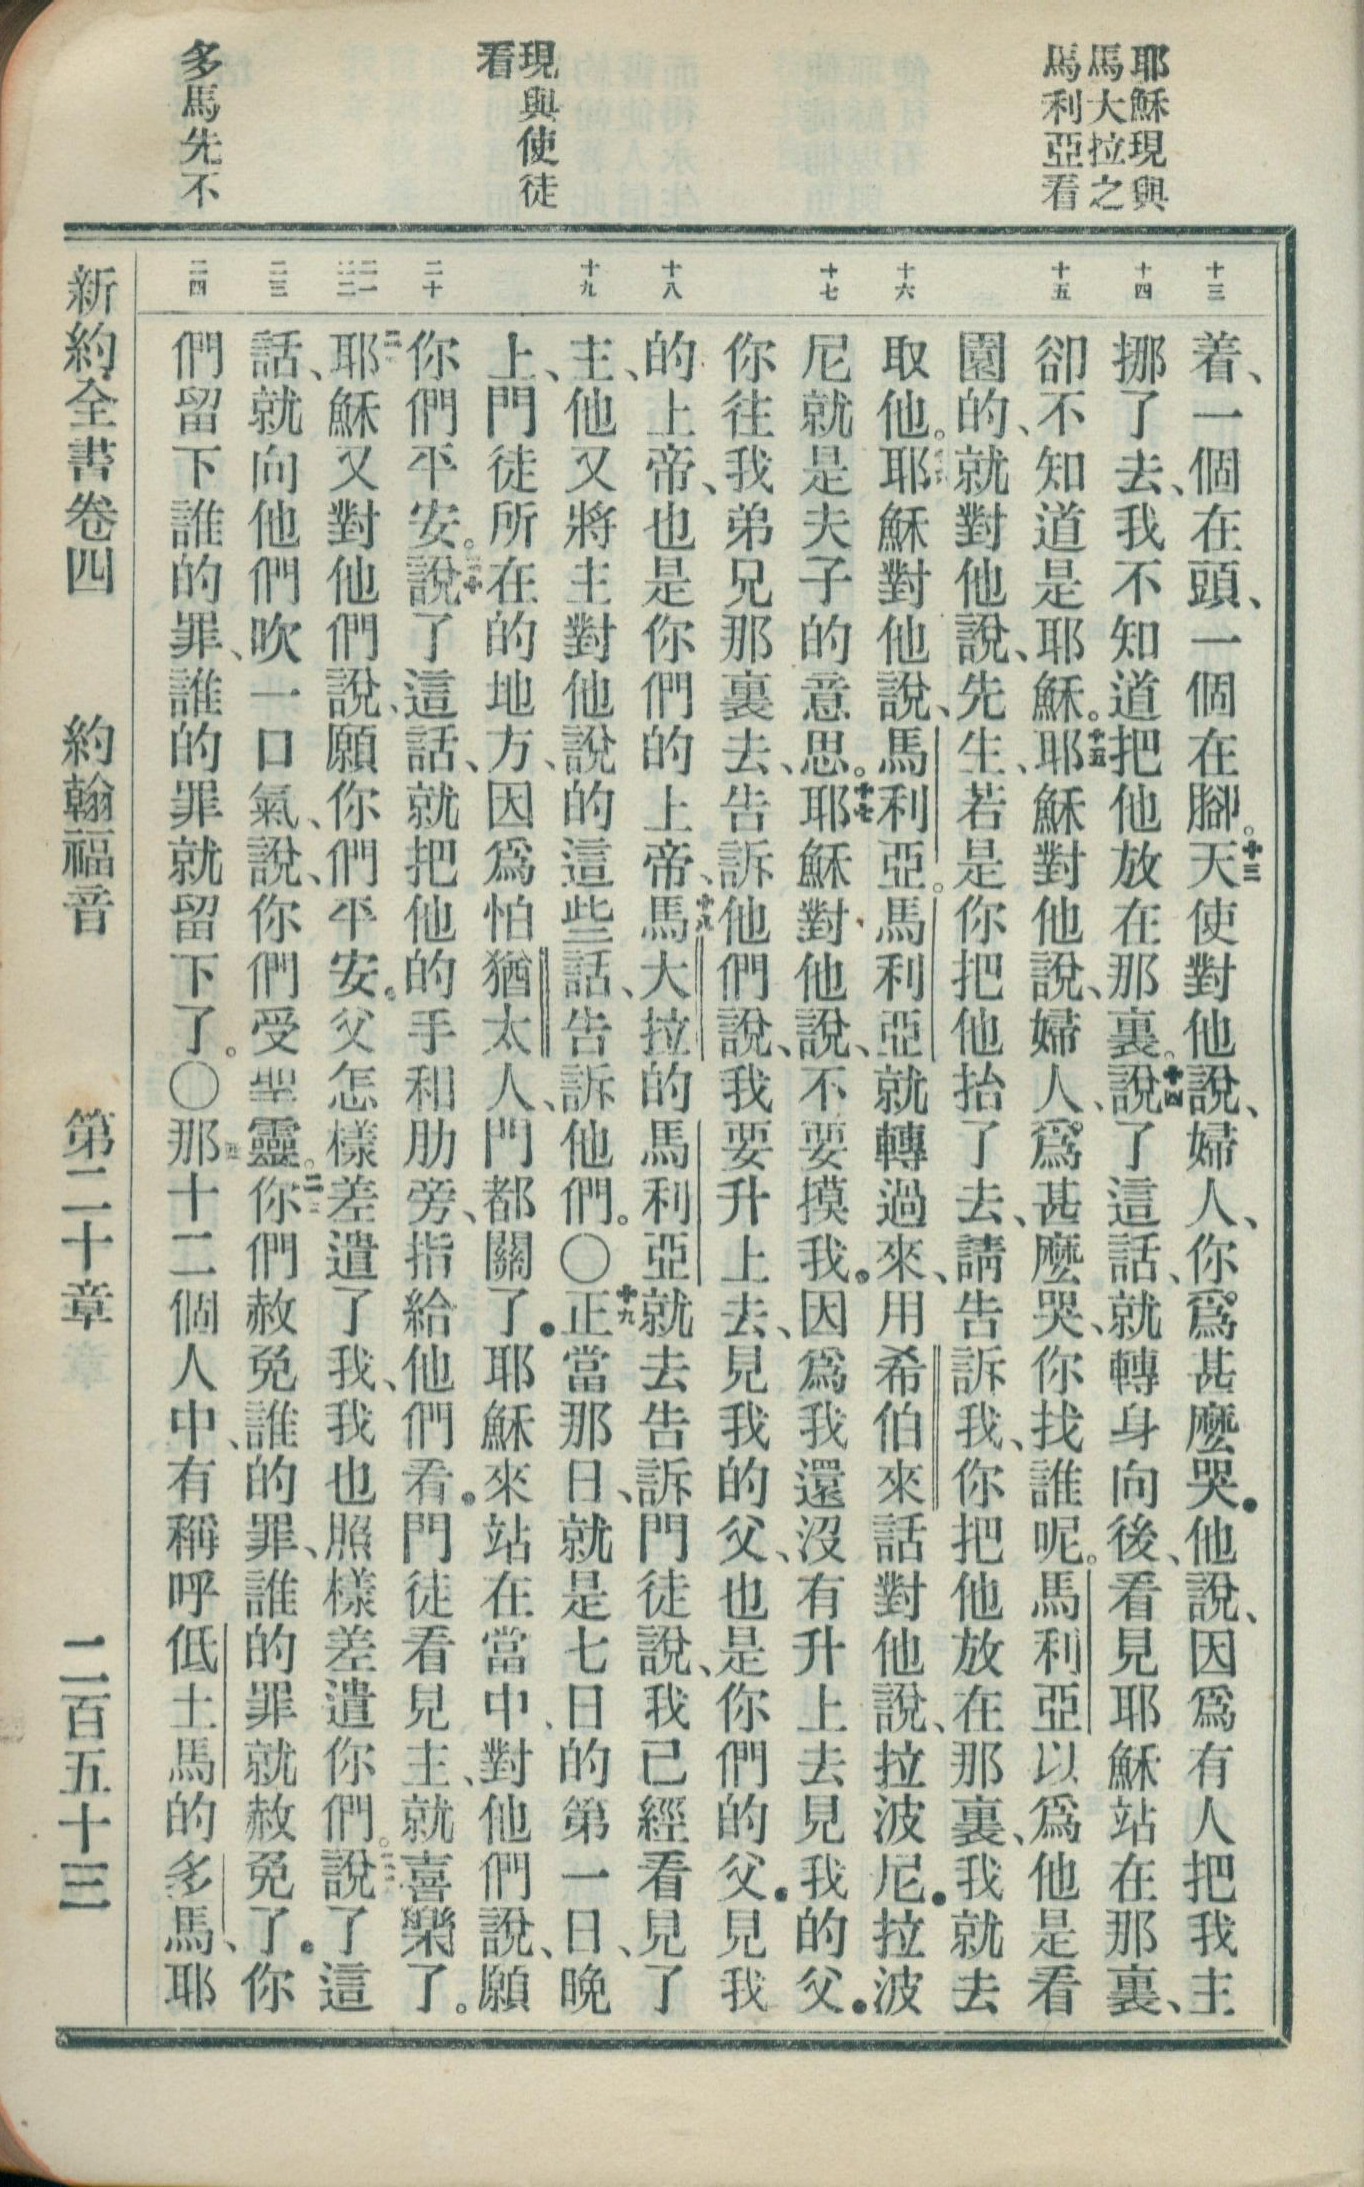 耶穌現與
馬大拉之
馬利亞看
現與使徒
看
多馬先不
十三
十四
十五
十六
十七
十八
十九
二十
二一
二二
二三
二四
着、一個在頭、一個在腳。十三天使對他說、婦人、你爲甚麼哭●他說、因爲有人把我主
挪了去、我不知道把他放在那裏。十四說了這話、就轉身向後、看見耶穌站在那裏、
卻不知道是耶穌。十五耶穌對他說、婦人、爲甚麼哭、你找誰呢。馬利亞以爲他是看
園的、就對他說、先生、若是你把他抬了去、請告訴我、你把他放在那裏、我就去
取他。十六耶穌對他說、馬利亞。馬利亞就轉過來、用希伯來話對他說、拉波尼●拉波
尼就是夫子的意思。十七耶穌對他說、不要摸我●因爲我還沒有升上去見我的父●
你往我弟兄那裏去、告訴他們說、我要升上去、見我的父、也是你們的父●見我
的上帝、也是你們的上帝、十八馬大拉的馬利亞就去告訴門徒說、我已經看見了
主、他又將主對他說的這些話、告訴他們。〇十九正當那日、就是七日的第一日、晚
上、門徒所在的地方、因爲怕猶太人、門都關了●耶穌來站在當中、對他們說、願
你們平安。二十說了這話、就把他的手和肋旁、指給他們看●門徒看見主、就喜樂了。
二一耶穌又對他們說、願你們平安●父怎樣差遣了我、我也照樣差遣你們。二二說了這
話、就向他們吹一口氣、說、你們受聖靈。二三你們赦免誰的罪、誰的罪就赦免了●你
們留下誰的罪、誰的罪就留下了。〇二四那十二個人中、有稱呼低土馬的多馬、耶
新約全書卷四 約翰福音 第二十章 二百五十三